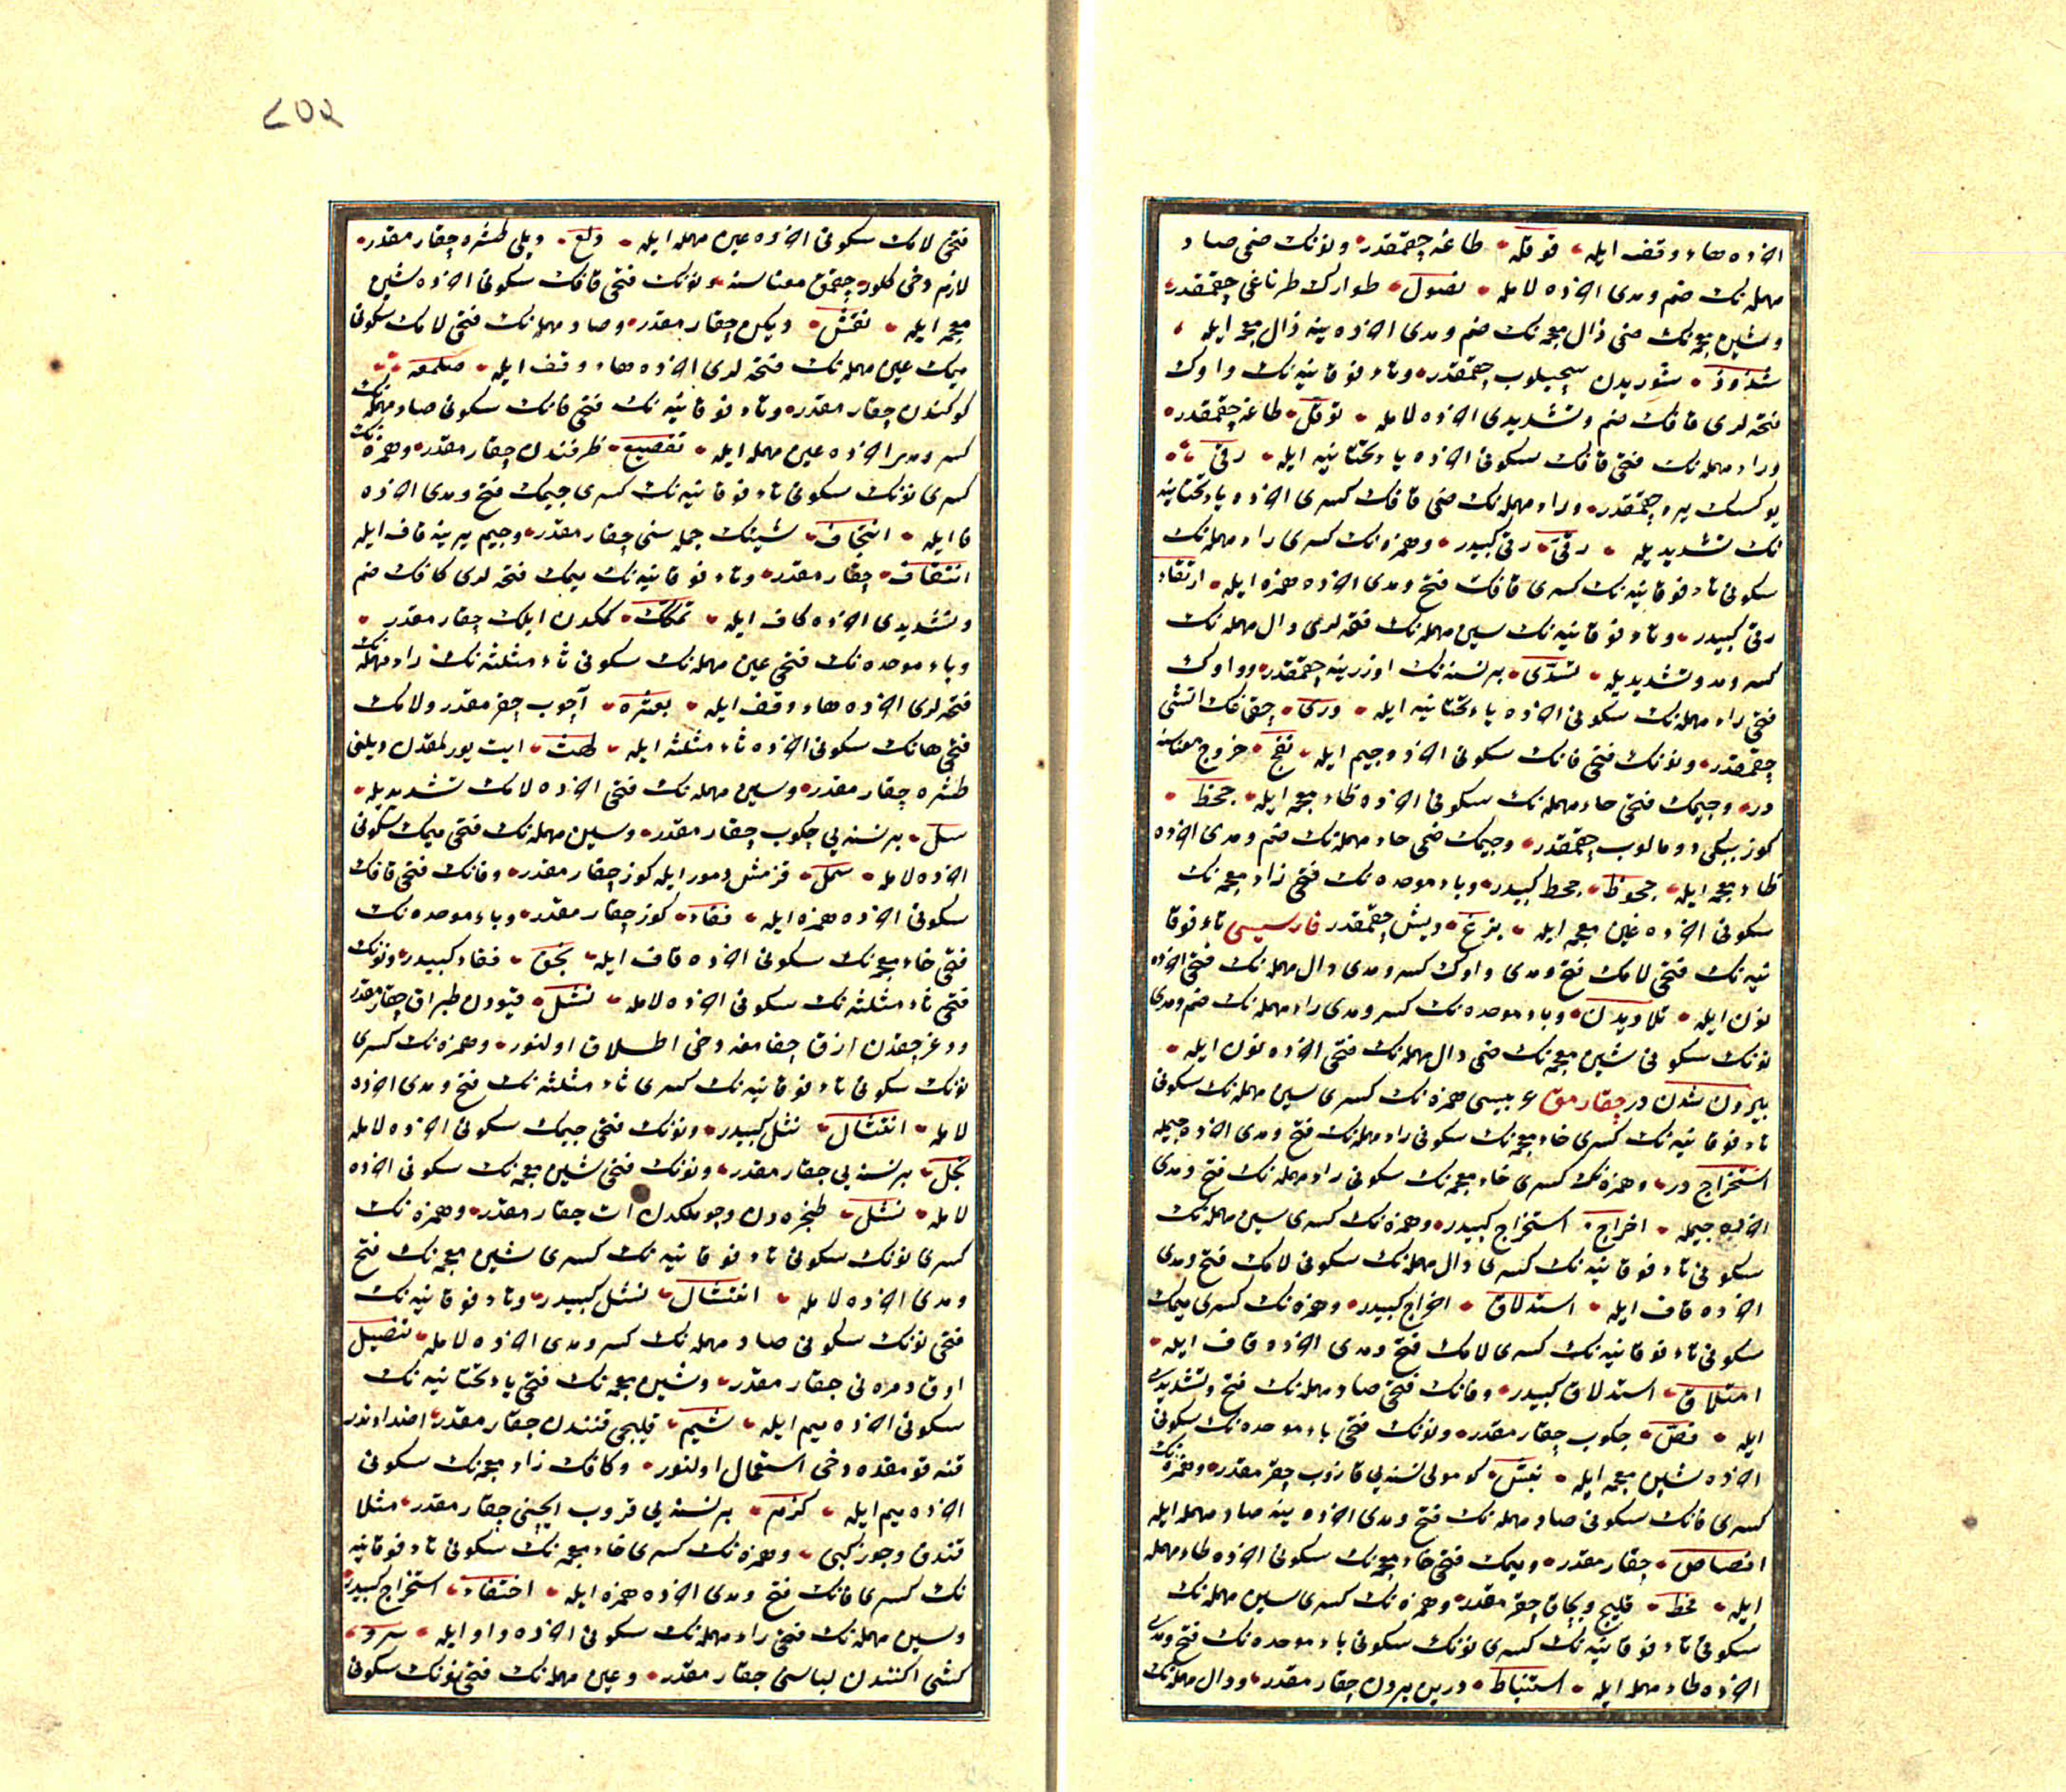 اخرده هاء وقف ایله قوقله طاغه چقمقدر ونونك ضمی صاد
مهمله نك ضم ومدی اخرده لامله نصول طوارك طرناغی چقمقدر
وشین معجمه نك ضمی ذال معجمه نك ضم ومدی اخرده ینه ذال معجمه ایله
شذوذ سوریدن سچیلوب چقمقدر وتاء فوقانیه نك واوك
فتحه لری قافك ضم وتشدیدی اخرده لامله توقل طاغه چقمقدر
وراء مهمله نك فتحی قافك سكونی اخرده یاء تحتانیه ایله رقی
یوكسك یره چقمقدر وراء مهمله نك ضمی قافك كسری اخرده یاء تحتانیه
نك تشدیدیله رقی رقی كبیدر وهمزه نك كسری راء مهمله نك
سكونی تاء فوقانیه نك كسری قافك فتح ومدی اخرده همزه ایله ارتقاء
رقی كبیدر وتاء فوقانیه نك سین مهمله نك فتحه لری دال مهمله نك
كسر ومد وتشدیدیله تسدی برنسنه نك اوزرینه چقمقدر وواوك
فتحی راء مهمله نك سكونی اخرده یاء تحتانیه ایله وری چقماقك اتشی
چقمقدر ونونك فتحی فانك سكونی اخرده جیم ایله نفج خروج معناسنه
در وجیمك فتحی حاء مهمله نك سكونی اخرده ظاء معجمه ایله جحظ
كوز ببكی دومالوب چقمقدر وجیمك ضمی حاء مهمله نك ضم ومدی اخرده
ظاء معجمه ایله جحوظ جحظ كبیدر وباء موحده نك فتحی زاء معجمه نك
سكونی اخرده غین معجمه ایله بزغ دیش چقمقدر فارسیسی تاء فوقا
نیه نك فتحی لامك فتح ومدی واوك كسر ومدی دال مهمله نك فتحی اخرده
نون ایله تلاویدن وباء موحده نك كسر ومدی راء مهمله نك ضم ومدی
نونك سكونی شین معجمه نك ضمی دال مهمله نك فتحی اخرده نون ایله
بیرون شدن در چقارمق عربیسی همزه نك كسری سین مهمله نك سكونی
تاء فوقانیه نك كسری خاء معجمه نك سكونی راء مهمله نك فتح ومدی اخرده جیمله
استخراج در وهمزه نك كسری خاء معجمه نك سكونی راء مهمله نك فتح ومدی
اخرده جیمله اخراج استخراج كبیدر وهمزه نك كسری سین مهمله نك
سكونی تاء فوقانیه نك كسری دال مهمله نك سكونی لامك فتح ومدی
اخرده قاف ایله استدلاق اخراج كبیدر وهمزه نك كسری میمك
سكونی تاء فوقانیه نك كسری لامك فتح ومدی اخرده قاف ایله
امتلاق استدلاق كبیدر وفانك فتحی صاد مهمله نك فتح وتشدیدی
ایله فصّ چكوب چقارمقدر ونونك فتحی باء موحده نك سكونی
اخرده شین معجمه ایله نبش كومولی نسنه یی قازوب چقرمقدر وهمزه نك
كسری فانك سكونی صاد مهمله نك فتح ومدی اخرده ینه صاد مهمله ایله
افصاص چقارمقدر ومیمك فتحی خاء معجمه نك سكونی اخرده طاء مهمله
ایله مخط قلیج وبچاق چقرمقدر وهمزه نك كسری سین مهمله نك
سكونی تاء فوقانیه نك كسری نونك سكونی باء موحده نك فتح ومدی
اخرده طاء مهمله ایله استنباط دریں بیرون چقارمقدر ودال مهمله نك
٢٥٢
فتحی لامك سكونی اخرده عین مهمله ایله دلع دیلی طشره چقارمقدر
لازم دخی كلور چقمق معناسنه ونونك فتحی قافك سكونی اخرده شین
معجمه ایله نقش دیكن چقارمقدر وصاد مهمله نك فتحی لامك سكونی
میمك عین مهمله نك فتحه لری اخرده هاء وقف ایله صلمعه
كوكندن چقارمقدر وتاء فوقانیه نك فتحی فانك سكونی صاد مهمله نك
كسر ومدی اخرده عین مهمله ایله تفصیع ظرفندن چقارمقدر وهمزه نك
كسری نونك سكونی تاء فوقانیه نك كسری جیمك فتح ومدی اخرده
فا ایله انتجاف شینك جمله سنی چقارمقدر وجیم یرینه قاف ایله
انتقاف چقارمقدر وتاء فوقانیه نك میمك فتحه لری كافك ضم
وتشدیدی اخرده كاف ایله تمكك كمكدن ایلك چقارمقدر
وباء موحده نك فتحی عین مهمله نك سكونی ثاء مثلثه نك راء مهمله نك
فتحه لری اخرده هاء وقف ایله بعثره آچوب چقرمقدر ولامك
فتحی هانك سكونی اخرده ثاء مثلثه ایله لهث ایت یورلمقدن دیلنی
طشره چقارمقدر وسین مهمله نك فتحی اخرده لامك تشدیدیله
سلّ برنسنه یی چكوب چقارمقدر وسین مهمله نك فتحی میمك سكونی
اخرده لامله سمل قزمش دمور ایله كوز چقارمقدر وفانك فتحی قافك
سكونی اخرده همزه ایله فقاء كوز چقارمقدر وباء موحده نك
فتحی خاء معجمه نك سكونی اخرده قاف ایله بخق فقاء كبیدر ونونك
فتحی ثاء مثلثه نك سكونی اخرده لامله نثل قیودن طپراق چقارمقدر
ودغرجقدن ازق چقارمغه دخی اطلاق اولنور وهمزه نك كسری
نونك سكونی تاء فوقانیه نك كسری ثاء مثلثه نك فتح ومدی اخرده
لامله انتثال نثل كبیدر ونونك فتحی جیمك سكونی اخرده لامله
نجل برنسنه یی چقارمقدر ونونك فتحی شین معجمه نك سكونی اخرده
لامله نشل طنجره دن وچوملكدن ات چقارمقدر وهمزه نك
كسری نونك سكونی تاء فوقانیه نك كسری شین معجمه نك فتح
ومدی اخرده لامله انتشال نشل كبیدر وتاء فوقانیه نك
فتحی نونك سكونی صاد مهمله نك كسر ومدی اخرده لامله تنصیل
اوق دمرنی چقارمقدر وشین معجمه نك فتحی یاء تحتانیه نك
سكونی اخرده میم ایله شیم قلیجی قنندن چقارمقدر اضداددندر
قنه قومقده دخی استعمال اولنور وكافك زاء معجمه نك سكونی
اخرده میم ایله كزم برنسنه یی قروب ایچنی چقارمقدر مثلا
فندق وجوز كبی وهمزه نك كسری خاء معجمه نك سكونی تاء فوقانیه
نك كسری فانك فتح ومدی اخرده همزه ایله اختفاء استخراج كبیدر
وسین مهمله نك فتحی راء مهمله نك سكونی اخرده واو ایله سرو
كشی اكنندن لباسنی چقارمقدر وعین مهمله نك فتحی نونك سكونی